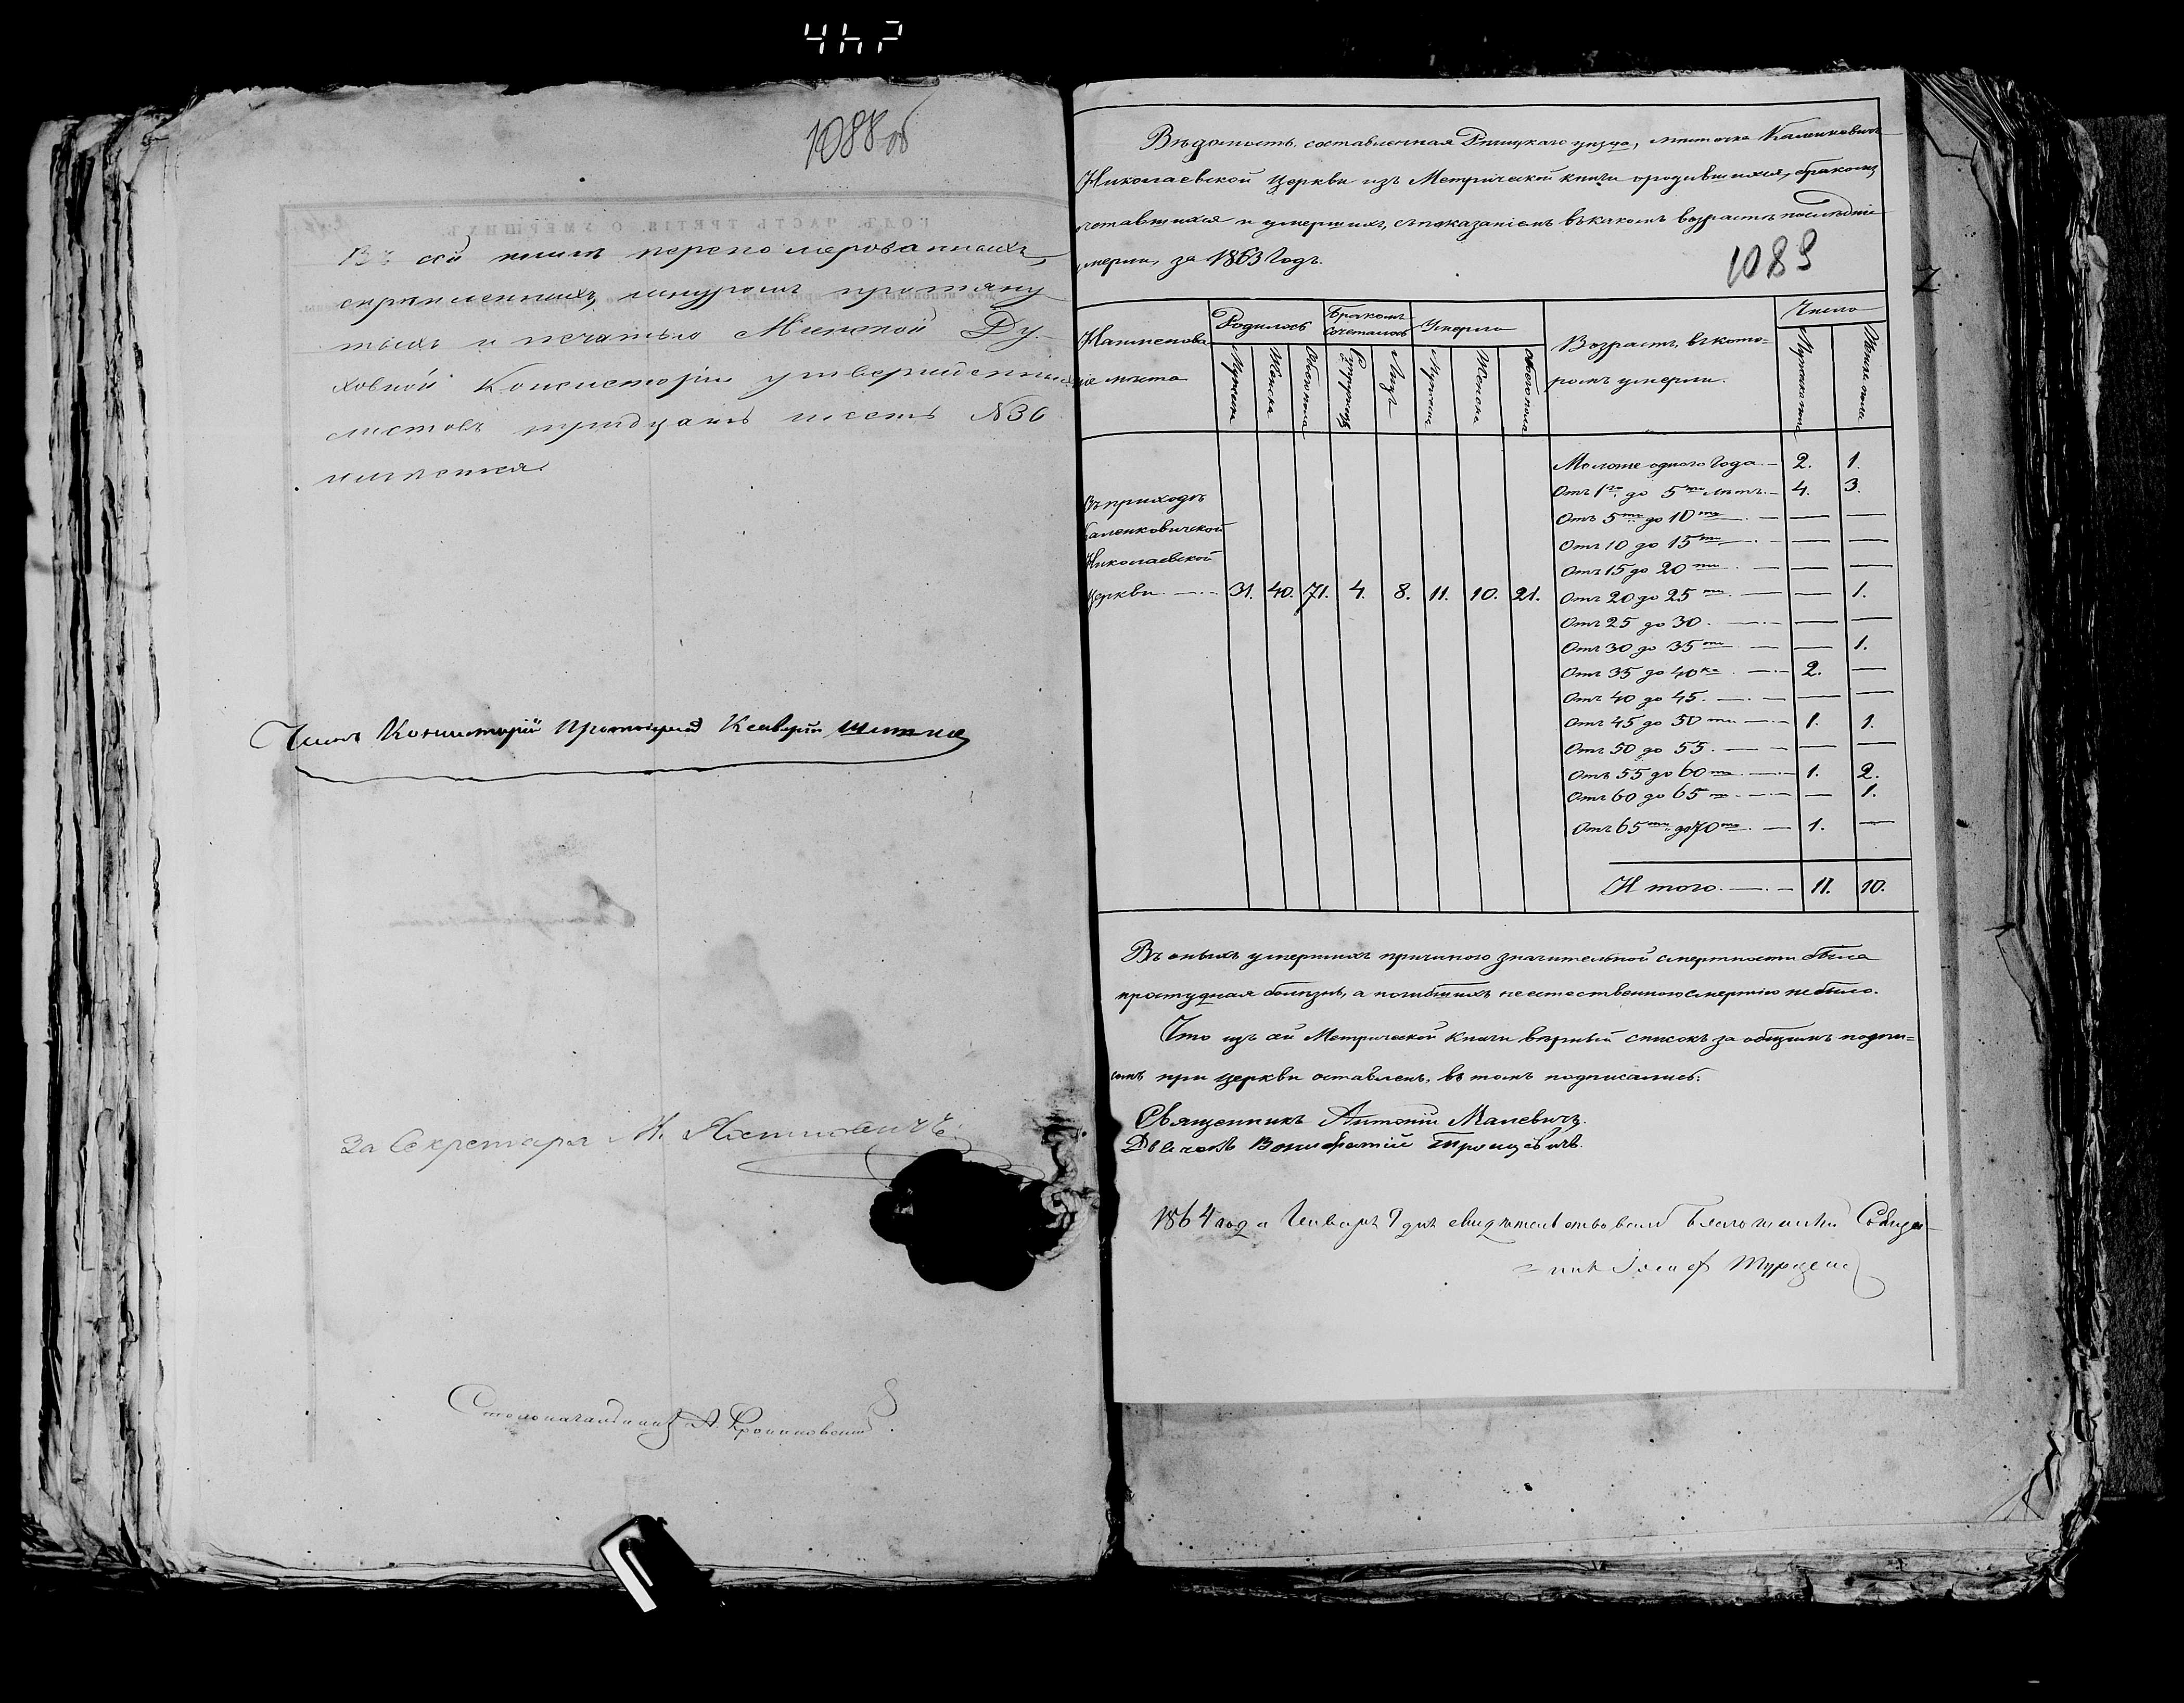 1088 об
Въ сей книгѣ перепомерованныхъ,
скрѣпленныхъ, шнуромъ протяну
тыхъ и печатью Минской Ду-
ховной Консисторіи утвержденныхъ
листовъ тридцать шесть №36
имѣется.
Членъ Консисторіи Протоіерей
За Секретаря М.
Столоначальникъ А.
Вѣдомость, составленная Рѣчицкаго уѣзда, мѣстечка Каленковичъ
Николаевской Церкви изъ Метрической книги о родившихся, бракомъ
сочетавшихся и умершихъ, съ показаніемъ въ какомъ возрастѣ послѣдніе
умерли, за 1863 годъ.
1089
Наименова-
ніе мѣста
Родилось
Мужеска
Женска
Обоего пола
Бракомъ
сочеталось
Супружествъ
Лицъ
Умерло
Мужеска
Женска
Обоего пола
Возрастъ, въ кото-
ромъ умерли.
Число
Мужеска пола
Женска пола
Въ приходѣ
Каленковичской
Николаевской
Церкви. — 31. 40. 71. 4. 8. 11. 10. 21.
Моложе одного года — 2. 1.
Отъ 1го до 5ти лѣтъ. — 4. 3.
Отъ 5ти до 10ти — — —
Отъ 10 до 15ти — — —
Отъ 15 до 20ти — — —
Отъ 20 до 25ти — — 1.
Отъ 25 до 30. — — —
Отъ 30 до 35ти — — 1.
Отъ 35 до 40ка — 2. —
Отъ 40 до 45. — — —
Отъ 45 до 50ти — 1. 1.
Отъ 50 до 55. — — —
Отъ 55 до 60ти — 1. 2.
Отъ 60 до 65ти — — 1.
Отъ 65ти до 70ти — 1. —
Итого. — 11. 10.
Въ оныхъ умершихъ причиною значительной смертности была
простудная болѣзнь, а погибшихъ неестественною смертію не было.
Что изъ сей Метрической книги вѣрный списокъ за общимъ подпи=
сомъ при церкви оставленъ, въ томъ подписались:
Священникъ Антоній Маневичъ.
Дьячокъ Вонифатій Троицевичъ.
1864 года Января 9 дня свидѣтельствовалъ Благочинный Священ
=никъ Іосифъ